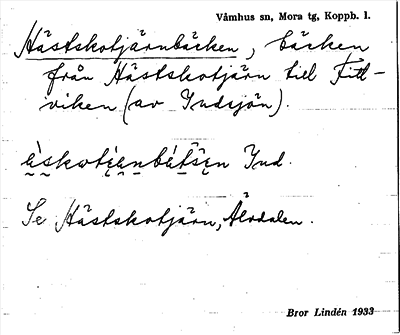 Våmhus sn, Mora tg, Koppb. l.
Hästskotjärnbäcken, bäcken
från Hästskotjärn till Fitt-
viken (av Indsjön).
Ind.
Se Hästskotjärn, Älvdalen.
Bror Lindén 1933